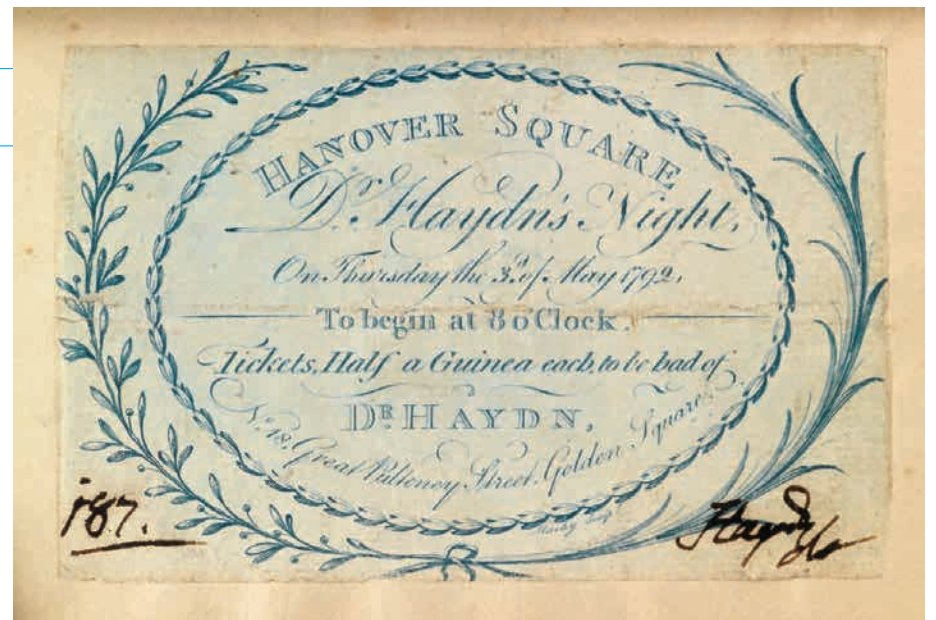 HANOVER SQUARE
Dr. Haydn's Night,
On Thursday the 3d. of May 1792.
To begin at 8 o'Clock.
Tickets, Half a Guinea each, to be had of
DR HAYDN,
No. 18, Great Pulteney Street, Golden Square.
187.
Haydn